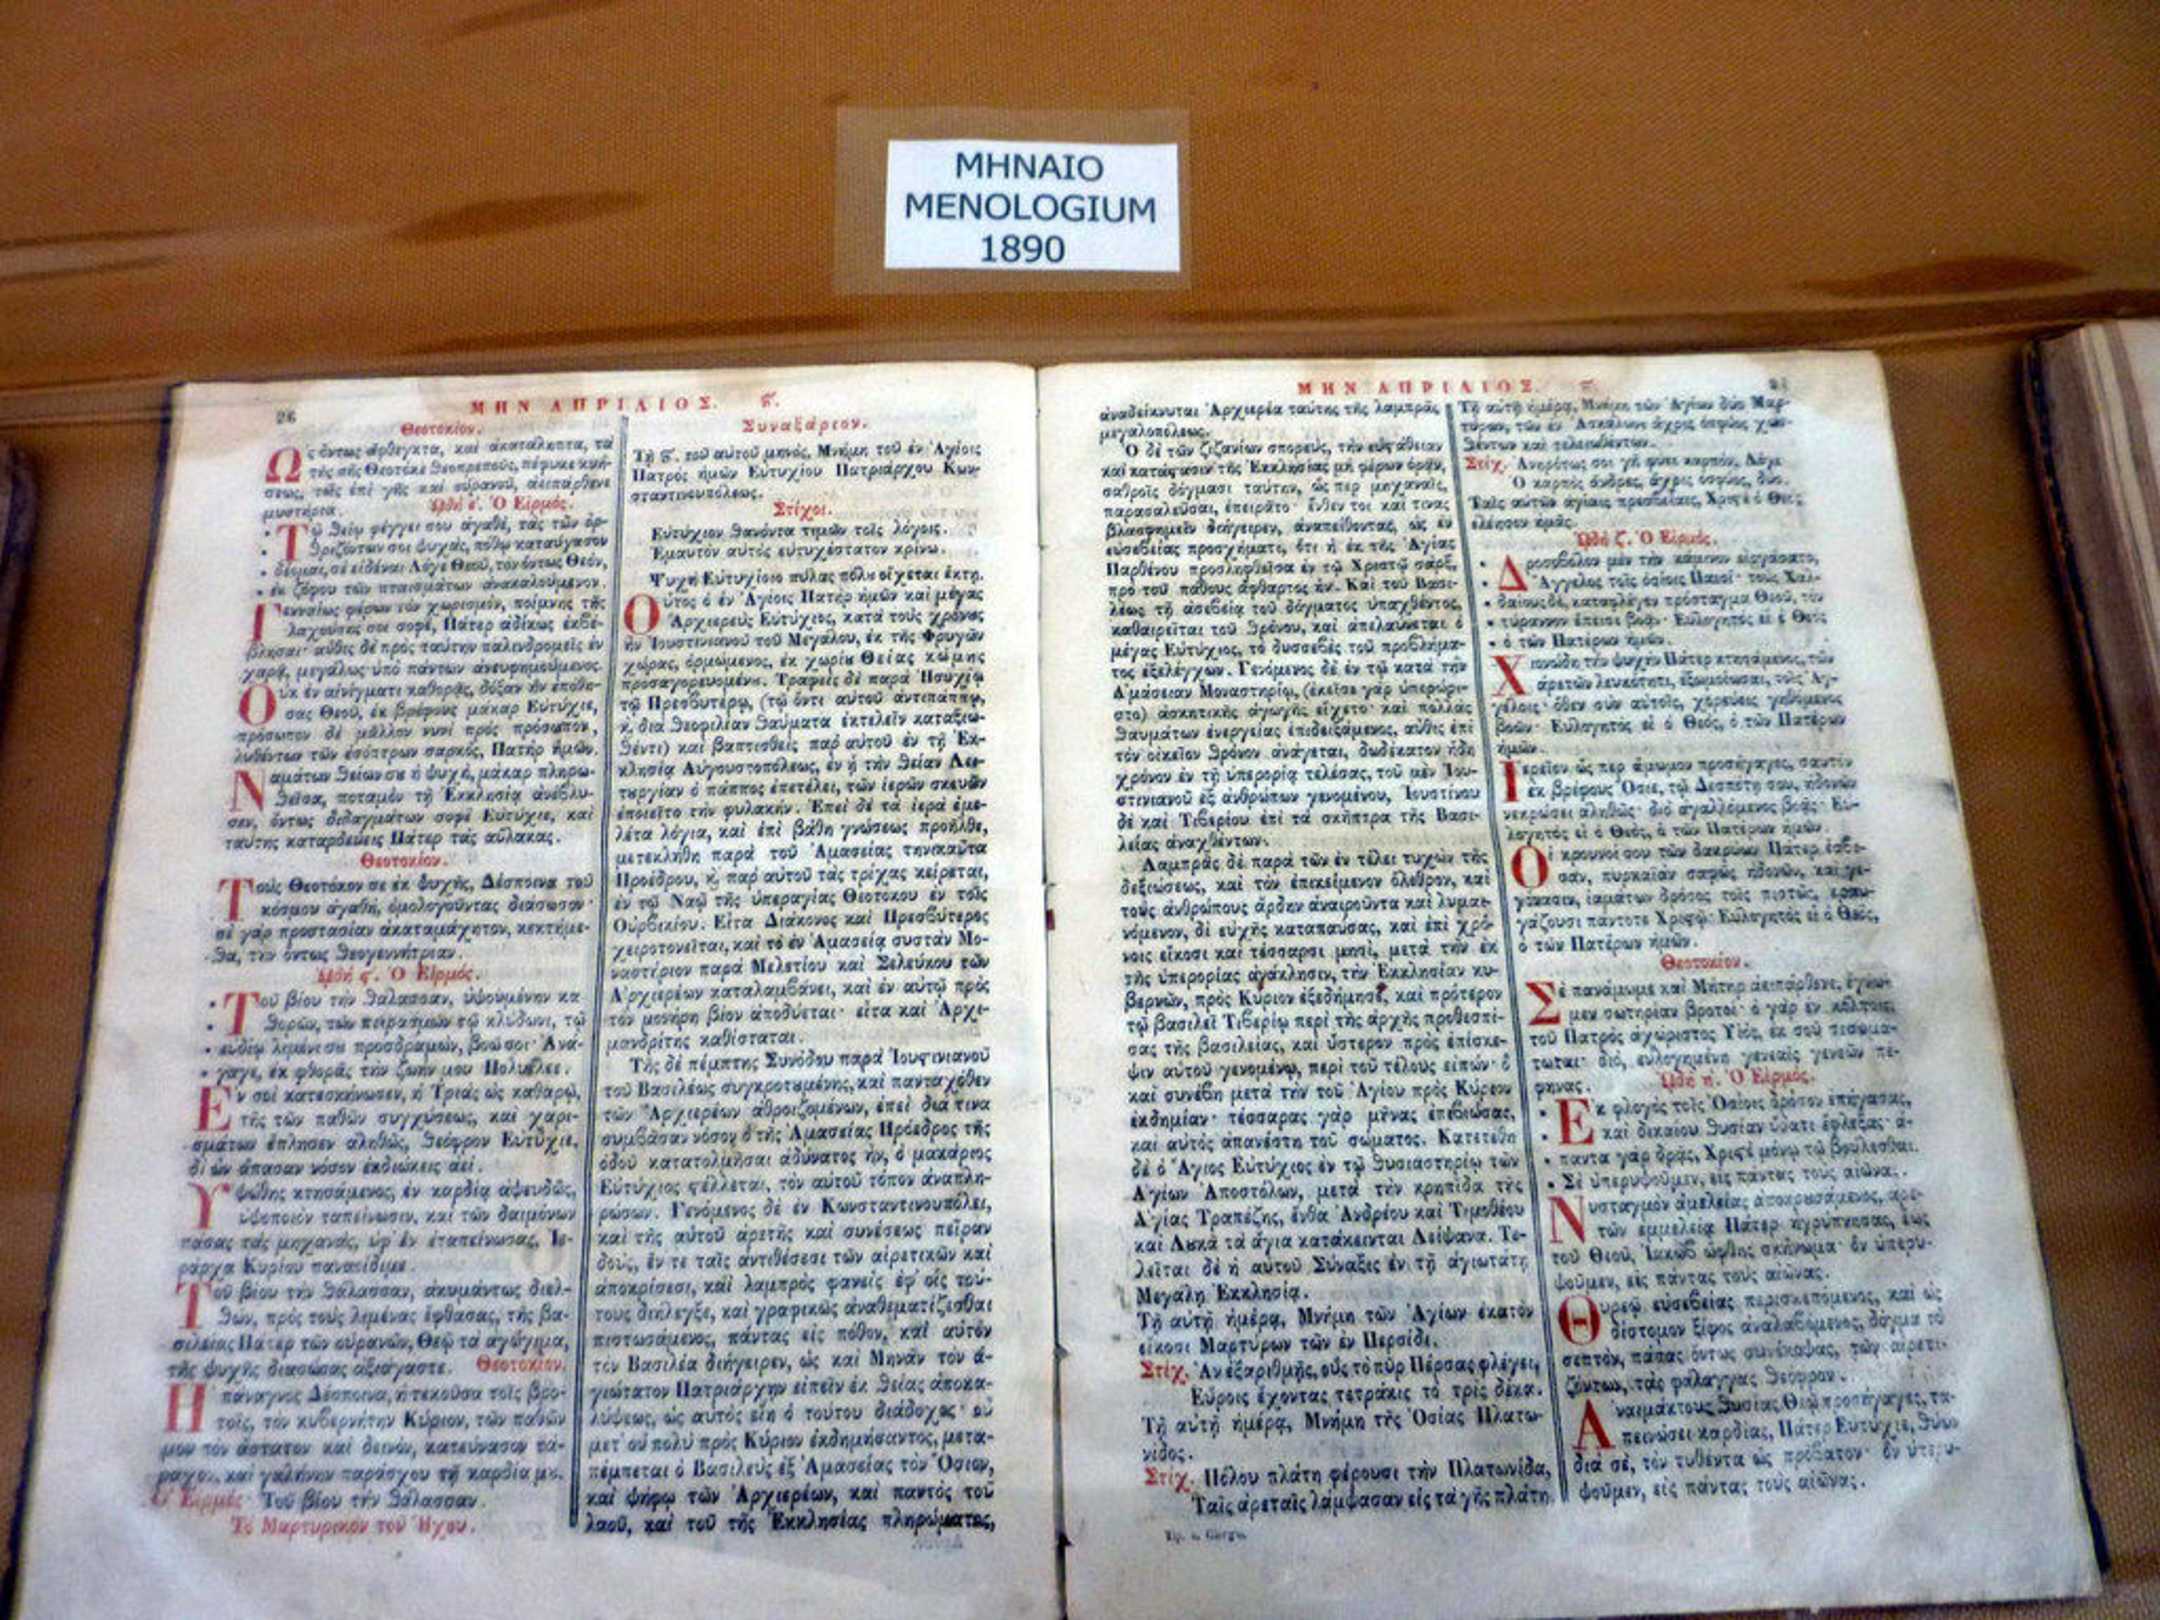 ΜΗΝΑΙΟ
MENOLOGIUM
1890
26
ΜΗΝ ΑΠΡΙΛΙΟΣ.
Θεοτοκίον.
Ως ὄντως ἄφθεγκτα, καὶ ἀκατάληπτα, τὰ
τῆς σῆς Θεοτόκε Θεοπρεποῦς, πέφυκε κυή-
σεως, τοῖς ἐπὶ γῆς καὶ οὐρανοῦ, ἀειπάρθενε
μυστήρια. Ὠδὴ έ. Ὁ Εἱρμός.
Τῷ θείῳ φέγγει σου ἀγαθέ, τὰς τῶν ὀρ-
θριζόντων σοι ψυχάς, πόθῳ καταύγασον
δέομαι, σὲ εἰδέναι Λόγε Θεοῦ, τὸν ὄντως Θεόν,
ἐκ ζόφου τῶν πταισμάτων ἀνακαλούμενον.
Γενναίως φέρων τὸν χωρισμόν, ποίμνης τῆς
λαχούσης σοι σοφέ, Πάτερ ἀδίκως ἐκβέ-
βλησαι· αὖθις δὲ πρὸς ταύτην παλινδρομεῖς ἐν
χαρᾷ, μεγάλως ὑπὸ πάντων ἀνευφημούμενος.
Οὐκ ἐν αἰνίγματι καθορᾷς, δόξαν ἣν ἐπόθη-
σας Θεοῦ, ἐκ βρέφους μάκαρ Εὐτύχιε,
πρόσωπον δὲ μᾶλλον νυνὶ πρὸς πρόσωπον,
λυθέντων τῶν ἐσόπτρων σαρκός, Πατὴρ ἡμῶν.
Ναμάτων θείων σου ἡ ψυχή, μάκαρ πληρω-
θεῖσα, ποταμὸν τῇ Ἐκκλησίᾳ ἀνέβλυ-
σεν, ὄντως διδαγμάτων σοφὲ Εὐτύχιε, καὶ
ταύτης καταρδεύεις Πάτερ τὰς αὔλακας.
Θεοτοκίον.
Τοὺς Θεοτόκον σε ἐκ ψυχῆς, Δέσποινα τοῦ
κόσμου ἀγαθή, ὁμολογοῦντας διάσωσον·
σὲ γὰρ προστασίαν ἀκαταμάχητον, κεκτήμε-
θα, τὴν ὄντως Θεογεννήτριαν.
Ὠδὴ ϛ. Ὁ Εἱρμός.
Τοῦ βίου τὴν θάλασσαν, ὑψουμένην κα
θορῶν, τῶν πειρασμῶν τῷ κλύδωνι, τῷ
εὐδίῳ λιμένι σου προσδραμών, βοῶ σοι· Ἀνά-
γαγε, ἐκ φθορᾶς τὴν ζωήν μου Πολυέλεε.
Ἐν σοὶ κατεσκήνωσεν, ἡ Τριὰς ὡς καθαρῷ,
τῆς τῶν παθῶν συγχύσεως, καὶ χαρι-
σμάτων ἔπλησεν ἀληθῶς, θεόφρον Εὐτύχιε,
δι' ὧν ἅπασαν νόσον ἐκδιώκεις ἀεί.
Υψώθης κτησάμενος, ἐν καρδίᾳ ἀψευδῶς,
ὑψοποιὸν ταπείνωσιν, καὶ τῶν δαιμόνων
πάσας τὰς μηχανάς, ὑφ' ἓν ἐταπείνωσας, Ἱε-
ράρχα Κυρίου παναοίδιμε.
Τοῦ βίου τὴν θάλασσαν, ἀκυμάντως διελ-
θών, πρὸς τοὺς λιμένας ἔφθασας, τῆς βα-
σιλείας Πάτερ τῶν οὐρανῶν, Θεῷ τὰ ἀγώγιμα,
τῆς ψυχῆς διασώσας ἀξιάγαστε. Θεοτοκίον.
Ἡ πάναγνος Δέσποινα, ἡ τεκοῦσα τοῖς βρο-
τοῖς, τὸν κυβερνήτην Κύριον, τῶν παθῶν
μου τὸν ἄστατον καὶ δεινόν, κατεύνασον τά-
ραχον, καὶ γαλήνην παράσχου τῇ καρδίᾳ μου.
Ὁ Εἱρμός· Τοῦ βίου τὴν θάλασσαν.
Τὸ Μαρτυρικὸν τοῦ Ἤχου.
Συναξάριον.
Τῇ ϛ. τοῦ αὐτοῦ μηνός, Μνήμη τοῦ ἐν Ἁγίοις
Πατρὸς ἡμῶν Εὐτυχίου Πατριάρχου Κων-
σταντινουπόλεως.
Στίχοι.
Εὐτύχιον θανόντα τιμῶν τοῖς λόγοις.
Ἐμαυτὸν αὐτὸς εὐτυχέστατον κρίνω.
Ψυχὴ Εὐτυχίοιο πύλας πόλου οἴχεται ἕκτῃ.
Οὗτος ὁ ἐν Ἁγίοις Πατὴρ ἡμῶν καὶ μέγας
Ἀρχιερεὺς Εὐτύχιος, κατὰ τοὺς χρόνους
ἦν Ἰουστινιανοῦ τοῦ Μεγάλου, ἐκ τῆς Φρυγῶν
χώρας, ὁρμώμενος, ἐκ χωρίου Θείας κώμης
προσαγορευομένου. Τραφεὶς δὲ παρὰ Ἡσυχίῳ
τῷ Πρεσβυτέρῳ, (τῷ ὄντι αὐτοῦ ἀντιπάππῳ,
κ̀ διὰ θεοφιλέαν θαύματα ἐκτελεῖν καταξιω-
θέντι) καὶ βαπτισθεὶς παρ' αὐτοῦ ἐν τῇ Ἐκ-
κλησίᾳ Αὐγουστοπόλεως, ἐν ᾗ τὴν θείαν Λει-
τουργίαν ὁ πάππος ἐπετέλει, τῶν ἱερῶν σκευῶν
ἐποιεῖτο τὴν φυλακήν. Ἐπεὶ δὲ τὰ ἱερὰ ἐμε-
λέτα λόγια, καὶ ἐπὶ βάθη γνώσεως προῆλθε,
μετεκλήθη παρὰ τοῦ Ἀμασείας τηνικαῦτα
Προέδρου, κ̀ παρ' αὐτοῦ τὰς τρίχας κείρεται,
ἐν τῷ Ναῷ τῆς ὑπεραγίας Θεοτόκου ἐν τοῖς
Οὐρβικίου. Εἶτα Διάκονος καὶ Πρεσβύτερος
χειροτονεῖται, καὶ τὸ ἐν Ἀμασείᾳ συστὰν Μο-
ναστήριον παρὰ Μελετίου καὶ Σελεύκου τῶν
Ἀρχιερέων καταλαμβάνει, καὶ ἐν αὐτῷ πρὸς
τὸν μονήρη βίον ἀποδύεται· εἶτα καὶ Ἀρχι-
μανδρίτης καθίσταται.
Τῆς δὲ πέμπτης Συνόδου παρὰ Ἰουστινιανοῦ
τοῦ Βασιλέως συγκροτουμένης, καὶ πανταχόθεν
τῶν Ἀρχιερέων ἀθροιζομένων, ἐπεὶ διά τινα
συμβᾶσαν νόσον ὁ τῆς Ἀμασείας Πρόεδρος τῆς
ὁδοῦ κατατολμῆσαι ἀδύνατος ἦν, ὁ μακάριος
Εὐτύχιος στέλλεται, τὸν αὐτοῦ τόπον ἀναπλη-
ρώσων. Γενόμενος δὲ ἐν Κωνσταντινουπόλει,
καὶ τῆς αὐτοῦ ἀρετῆς καὶ συνέσεως πεῖραν
δούς, ἔν τε ταῖς ἀντιθέσεσι τῶν αἱρετικῶν καὶ
ἀποκρίσεσι, καὶ λαμπρὸς φανεὶς ἐφ' οἷς τού-
τους διήλεγξε, καὶ γραφικῶς ἀναθεματίζεσθαι
πιστωσάμενος, πάντας εἰς πόθον, καὶ αὐτὸν
τὸν Βασιλέα διήγειρεν, ὡς καὶ Μηνᾶν τὸν ἁ-
γιώτατον Πατριάρχην εἰπεῖν ἐκ θείας ἀποκα-
λύψεως, ὡς αὐτὸς εἴη ὁ τούτου διάδοχος· οὗ
μετ' οὐ πολὺ πρὸς Κύριον ἐκδημήσαντος, μετα-
πέμπεται ὁ Βασιλεὺς ἐξ Ἀμασείας τὸν Ὅσιον,
καὶ ψήφῳ τῶν Ἀρχιερέων, καὶ παντὸς τοῦ
λαοῦ, καὶ τοῦ τῆς Ἐκκλησίας πληρώματος,
ΜΗΝ ΑΠΡΙΛΙΟΣ.
ἀναδείκνυται Ἀρχιερέα ταύτης τῆς λαμπρᾶς
μεγαλοπόλεως.
Ὁ δὲ τῶν ζιζανίων σπορεύς, τὴν εὐστάθειαν
καὶ κατάστασιν τῆς Ἐκκλησίας μὴ φέρων ὁρᾷν,
σαθροῖς δόγμασι ταύτην, ὥς περ μηχαναῖς,
παρασαλεῦσαι, ἐπειρᾶτο· ἔνθεν τοι καί τινας
βλασφημεῖν διήγειρεν, ἀναπείθοντας, ὡς ἐν
εὐσεβείας προσχήματι, ὅτι ἡ ἐκ τῆς Ἁγίας
Παρθένου προσληφθεῖσα ἐν τῷ Χριστῷ σάρξ,
πρὸ τοῦ πάθους ἄφθαρτος ἦν. Καὶ τοῦ Βασι-
λέως τῇ ἀσεβείᾳ τοῦ δόγματος ὑπαχθέντος,
καθαιρεῖται τοῦ θρόνου, καὶ ἀπελαύνεται ὁ
μέγας Εὐτύχιος, τὸ δυσσεβὲς τοῦ προβλήμα-
τος ἐξελέγχων. Γενόμενος δὲ ἐν τῷ κατὰ τὴν
Ἀμάσειαν Μοναστηρίῳ, (ἐκεῖσε γὰρ ὑπερώρι-
στο) ἀσκητικῆς ἀγωγῆς εἴχετο· καὶ πολλὰς
θαυμάτων ἐνεργείας ἐπιδειξάμενος, αὖθις ἐπὶ
τὸν οἰκεῖον θρόνον ἀνάγεται, δωδέκατον ἤδη
χρόνον ἐν τῇ ὑπερορίᾳ τελέσας, τοῦ μὲν Ἰου-
στινιανοῦ ἐξ ἀνθρώπων γενομένου, Ἰουστίνου
δὲ καὶ Τιβερίου ἐπὶ τὰ σκῆπτρα τῆς Βασι-
λείας ἀναχθέντων.
Λαμπρᾶς δὲ παρὰ τῶν ἐν τέλει τυχὼν τῆς
δεξιώσεως, καὶ τὸν ἐπικείμενον ὄλεθρον, καὶ
τοὺς ἀνθρώπους ἄρδην ἀναιροῦντα καὶ λυμαι-
νόμενον, δι' εὐχῆς καταπαύσας, καὶ ἐπὶ χρό-
νοις εἴκοσι καὶ τέσσαρσι μησί, μετὰ τὴν ἐκ
τῆς ὑπερορίας ἀνάκλησιν, τὴν Ἐκκλησίαν κυ-
βερνῶν, πρὸς Κύριον ἐξεδήμησε, καὶ πρότερον
τῷ βασιλεῖ Τιβερίῳ περὶ τῆς ἀρχῆς προθεσπί-
σας τῆς βασιλείας, καὶ ὕστερον πρὸς ἐπίσκε-
ψιν αὐτοῦ γενομένῳ, περὶ τοῦ τέλους εἰπών· ὃ
καὶ συνέβη μετὰ τὴν τοῦ Ἁγίου πρὸς Κύριον
ἐκδημίαν· τέσσαρας γὰρ μῆνας ἐπεβίωσας,
καὶ αὐτὸς ἀπανέστη τοῦ σώματος. Κατετέθη
δὲ ὁ Ἅγιος Εὐτύχιος ἐν τῷ θυσιαστηρίῳ τῶν
Ἁγίων Ἀποστόλων, μετὰ τὴν κρηπῖδα τῆς
Ἁγίας Τραπέζης, ἔνθα Ἀνδρέου καὶ Τιμοθέου
καὶ Λουκᾶ τὰ ἅγια κατάκεινται Λείψανα. Τε-
λεῖται δὲ ἡ αὐτοῦ Σύναξις ἐν τῇ ἁγιωτάτῃ
Μεγάλῃ Ἐκκλησίᾳ.
Τῇ αὐτῇ ἡμέρᾳ, Μνήμη τῶν Ἁγίων ἑκατὸν
εἴκοσι Μαρτύρων τῶν ἐν Περσίδι.
Στίχ. Ἂν ἐξαριθμῇς, οὓς τὸ πῦρ Πέρσας φλέγει,
Εὕροις ἔχοντας τετράκις τὸ τρὶς δέκα.
Τῇ αὐτῇ ἡμέρᾳ, Μνήμη τῆς Ὁσίας Πλατω-
νίδος.
Στίχ. Πόλου πλάτη φέρουσι τὴν Πλατωνίδα,
Ταῖς ἀρεταῖς λάμψασαν εἰς τὰ γῆς πλάτη.
Τῇ αὐτῇ ἡμέρᾳ, Μνήμη τῶν Ἁγίων δύο Μαρ-
τύρων, τῶν ἐν Ἀσκάλωνι ἄχρις ὀσφύος χωσ-
θέντων καὶ τελειωθέντων.
Στίχ. Ἀνηρότως σοι γῆ φύει καρπόν, Λόγε
Ὁ καρπὸς ἄνδρες, ἄχρις ὀσφύος, δύο.
Ταῖς αὐτῶν ἁγίαις πρεσβείαις, Χριστὲ ὁ Θεός,
ἐλέησον ἡμᾶς.
Ὠδὴ ζ. Ὁ Εἱρμός.
Δροσοβόλον μὲν τὴν κάμινον εἰργάσατο,
Ἄγγελος τοῖς ὁσίοις Παισί· τοὺς Χαλ-
δαίους δέ, καταφλέγον πρόσταγμα Θεοῦ, τὸν
τύραννον ἔπεισε βοᾷν· Εὐλογητὸς εἶ ὁ Θεὸς
ὁ τῶν Πατέρων ἡμῶν.
Χιονώδη τὴν ψυχὴν Πάτερ κτησάμενος, τῶν
ἀρετῶν λευκότητι, ἐξωμοίωσαι, τοῖς Ἀγ-
γέλοις· ὅθεν σὺν αὐτοῖς, χορεύεις γηθόμενος
βοῶν· Εὐλογητὸς εἶ ὁ Θεός, ὁ τῶν Πατέρων
ἡμῶν.
Ἱερεῖον ὥς περ ἄμωμον προσήγαγες, σαυτὸν
ἐκ βρέφους Ὅσιε, τῷ Δεσπότῃ σου, ἡδονῶν
νεκρώσει ἀληθῶς· διὸ ἀγαλλόμενος βοᾷς· Εὐ-
λογητὸς εἶ ὁ Θεός, ὁ τῶν Πατέρων ἡμῶν.
Οἱ κρουνοί σου τῶν δακρύων Πάτερ ἔσβε-
σαν, πυρκαϊὰν σαφῶς ἡδονῶν, καὶ γε-
γόνασιν, ἰαμάτων δρόσος τοῖς πιστῶς, κραυ-
γάζουσι πάντοτε Χριστῷ· Εὐλογητὸς εἶ ὁ Θεός,
ὁ τῶν Πατέρων ἡμῶν.
Θεοτοκίον.
Σὲ πανάμωμε καὶ Μήτηρ ἀειπάρθενε, ἔγνω-
μεν σωτηρίαν βροτοί· ὁ γὰρ ἐν κόλποις,
τοῦ Πατρὸς ἀχώριστος Υἱός, ἐκ σοῦ σεσωμά-
τωται· διό, εὐλογημένη γενεαῖς γενεῶν πέ-
φηνας. Ὠδὴ η. Ὁ Εἱρμός.
Ἐκ φλογὸς τοῖς Ὁσίοις δρόσον ἐπήγασας,
καὶ δικαίου θυσίαν ὕδατι ἔφλεξας· ἅ-
παντα γὰρ δρᾷς, Χριστὲ μόνῳ τῷ βούλεσθαι.
Σὲ ὑπερυψοῦμεν, εἰς πάντας τοὺς αἰῶνας.
Νυσταγμὸν ἀμελείας ἀποκρουσάμενος, ἀρε-
τῶν ἐμμελείᾳ Πάτερ ἠγρύπνησας, ἕως
τοῦ Θεοῦ, Ἰακὼβ ὤφθης σκήνωμα· ὃν ὑπερυ-
ψοῦμεν, εἰς πάντας τοὺς αἰῶνας.
Θυρεῷ εὐσεβείας περισκεπόμενος, καὶ ὡς
δίστομον ξίφος ἀναλαβόμενος, δόγμα τὸ
σεπτόν, πάσας ὄντως συνέκοψας, τῶν αἱρετι-
ζόντων, τὰς φάλαγγας θεόφρον.
Ἀναιμάκτους θυσίας Θεῷ προσήγαγες, τα-
πεινώσει καρδίας, Πάτερ Εὐτύχιε, θύων
διὰ σέ, τὸν τυθέντα ὡς πρόβατον· ὃν ὑπερυ-
ψοῦμεν, εἰς πάντας τοὺς αἰῶνας.